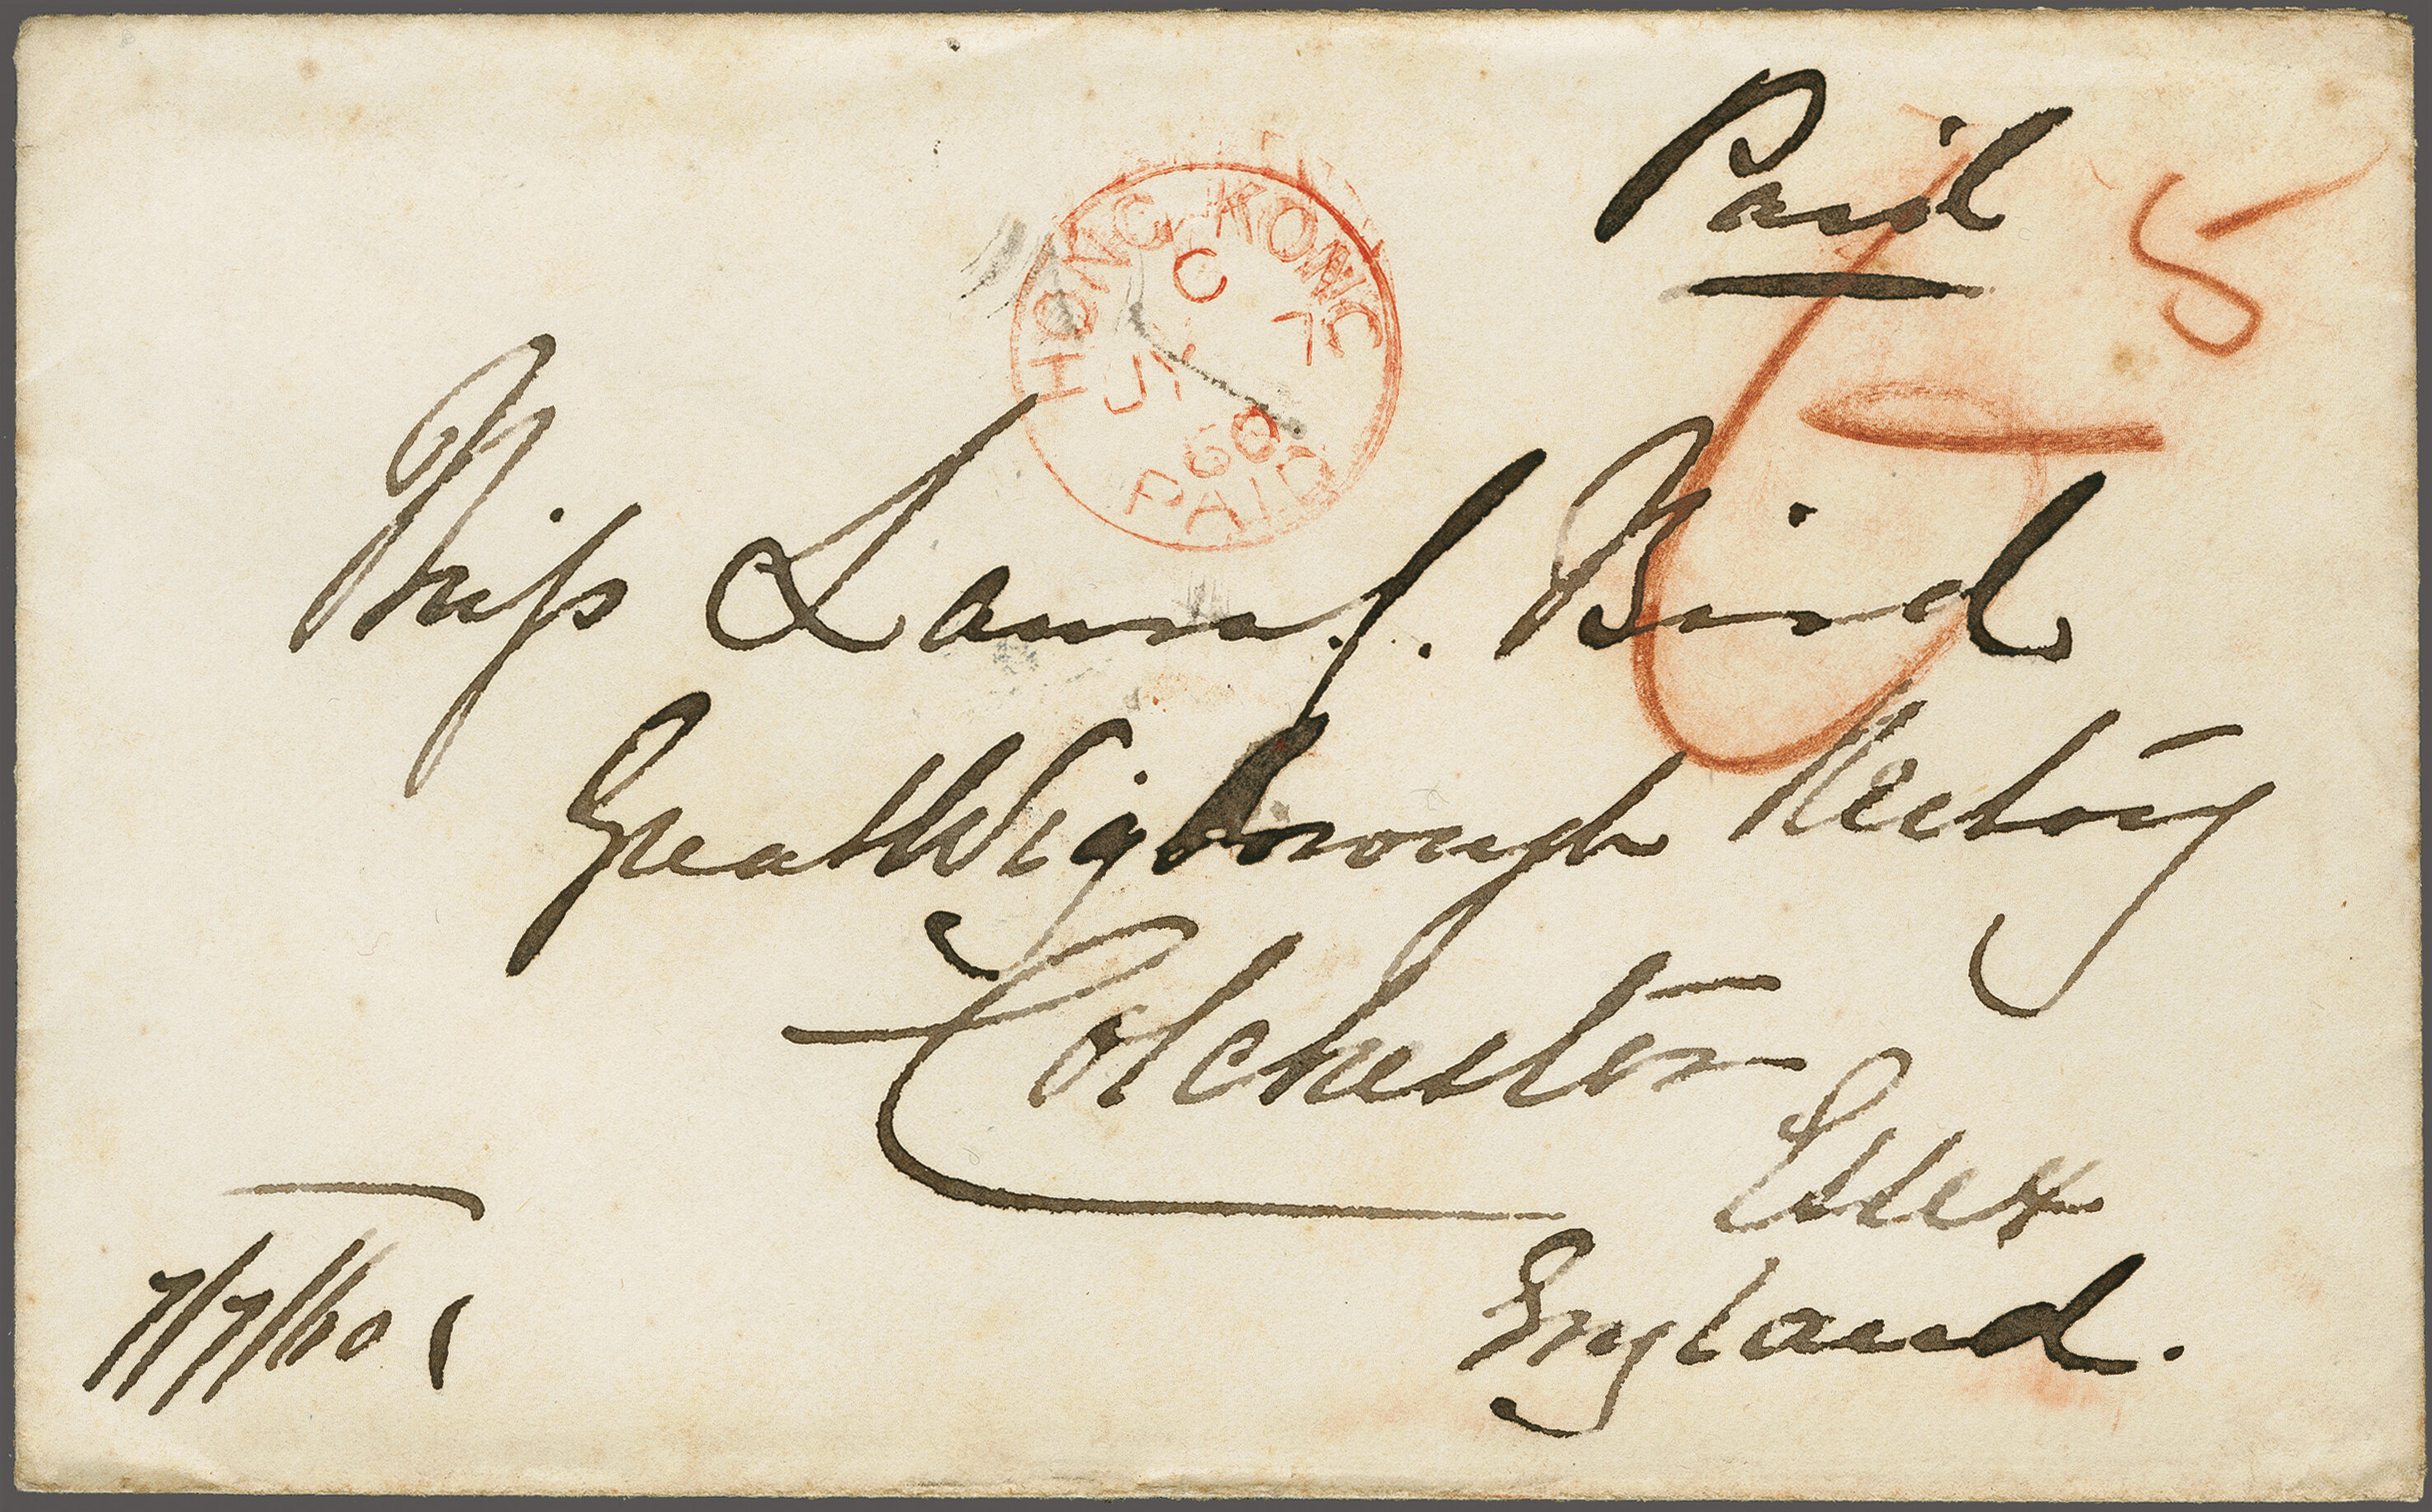 Paid
5
6
HONG KONG
C
JY 7
60
PAID
Miss Laura J. Bird
Great Wigborough Rectory
Colchester
Essex
England.
7/7/60